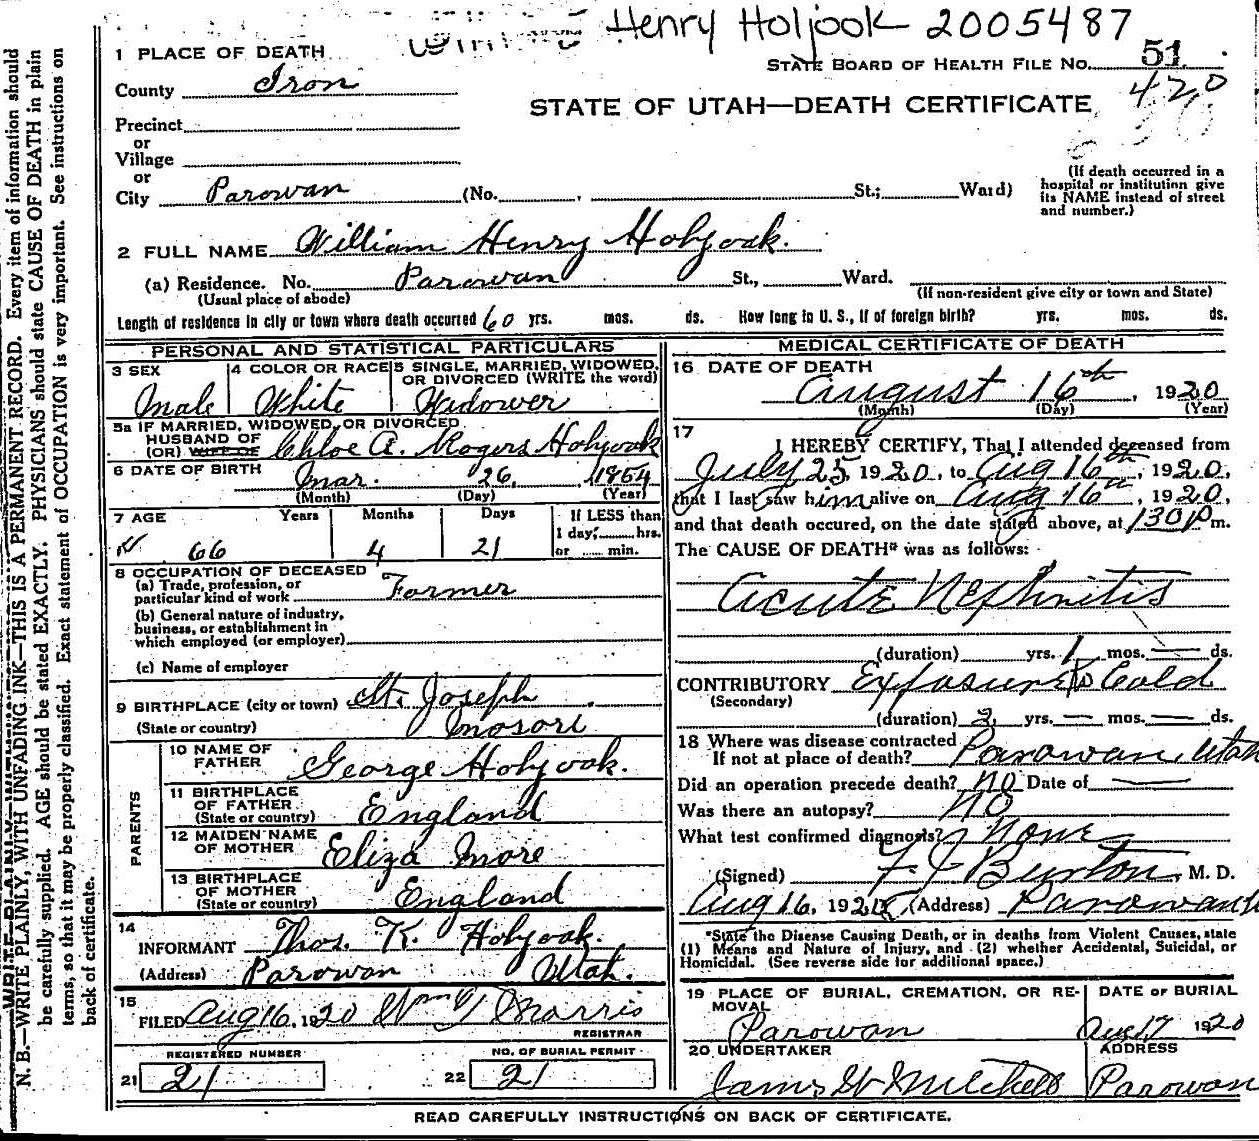 Henry Holjook 2005487
1 PLACE OF DEATH
STATE BOARD OF HEALTH FILE No. 51
County Iron
420
STATE OF UTAH—DEATH CERTIFICATE
Precinct
or
Village
or
City Parowan (No. , St.; Ward)
(If death occurred in a
hospital or institution give
its NAME instead of street
and number.)
2 FULL NAME William Henry Holyoak.
(a) Residence. No. Parowan St., Ward.
(Usual place of abode) (If non-resident give city or town and State)
Length of residence in city or town where death occurred 60 yrs. mos. ds. How long in U. S., if of foreign birth? yrs. mos. ds.
PERSONAL AND STATISTICAL PARTICULARS
3 SEX Male
4 COLOR OR RACE White
5 SINGLE, MARRIED, WIDOWED,
OR DIVORCED (WRITE the word)
Widower
5a IF MARRIED, WIDOWED, OR DIVORCED
HUSBAND OF
(OR) WIFE OF Chloe A. Rogers Holyoak
6 DATE OF BIRTH Mar. 26, 1854
(Month) (Day) (Year)
7 AGE Years Months Days If LESS than
1 day, hrs.
66 4 21 or min.
8 OCCUPATION OF DECEASED
(a) Trade, profession, or
particular kind of work Farmer
(b) General nature of industry,
business, or establishment in
which employed (or employer)
(c) Name of employer
9 BIRTHPLACE (city or town) St. Joseph
(State or country) Mosori
PARENTS
10 NAME OF
FATHER George Holyoak.
11 BIRTHPLACE
OF FATHER
(State or country) England
12 MAIDEN NAME
OF MOTHER Eliza More
13 BIRTHPLACE
OF MOTHER
(State or country) England
14
INFORMANT Thos. K. Holyoak.
(Address) Parowan Utah.
15
FILED Aug 16, 1920 Wm G Morris
REGISTRAR
REGISTERED NUMBER
21 21
NO. OF BURIAL PERMIT
22 21
MEDICAL CERTIFICATE OF DEATH
16 DATE OF DEATH
August 16th, 1920
(Month) (Day) (Year)
17
I HEREBY CERTIFY, That I attended deceased from
July 25, 1920, to Aug 16th, 1920,
that I last saw him alive on Aug 16th, 1920,
and that death occured, on the date stated above, at 130 P m.
The CAUSE OF DEATH* was as follows:
Acute Nephritis
(duration) yrs. 1 mos. — ds.
CONTRIBUTORY Exposure to Cold
(Secondary)
(duration) 2 yrs. — mos. — ds.
18 Where was disease contracted
If not at place of death? Parowan, Utah
Did an operation precede death? No Date of —
Was there an autopsy? No
What test confirmed diagnosis? None
(Signed) F J Burton, M. D.
Aug 16, 1920 (Address) Parowan
*State the Disease Causing Death, or in deaths from Violent Causes, state
(1) Means and Nature of Injury, and (2) whether Accidental, Suicidal, or
Homicidal. (See reverse side for additional space.)
19 PLACE OF BURIAL, CREMATION, OR RE-
MOVAL
Parowan
DATE OF BURIAL
Aug 17 1920
20 UNDERTAKER
James W Mitchell
ADDRESS
Parowan
READ CAREFULLY INSTRUCTIONS ON BACK OF CERTIFICATE.
N. B.—WRITE PLAINLY, WITH UNFADING INK—THIS IS A PERMANENT RECORD. Every item of information should
be carefully supplied. AGE should be stated EXACTLY. PHYSICIANS should state CAUSE OF DEATH in plain
terms, so that it may be properly classified. Exact statement of OCCUPATION is very important. See instructions on
back of certificate.